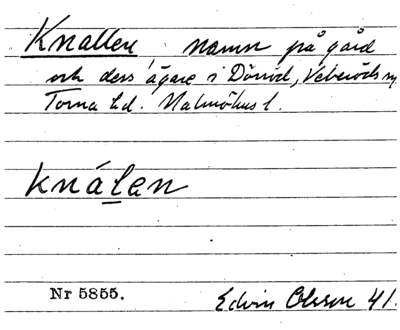 Knallen namn på gård
och dess ägare i Dörröd, Veberöds sn
Torna hd. Malmöhus l.
knálen
Nr 5855.
Edvin Olsson 41.